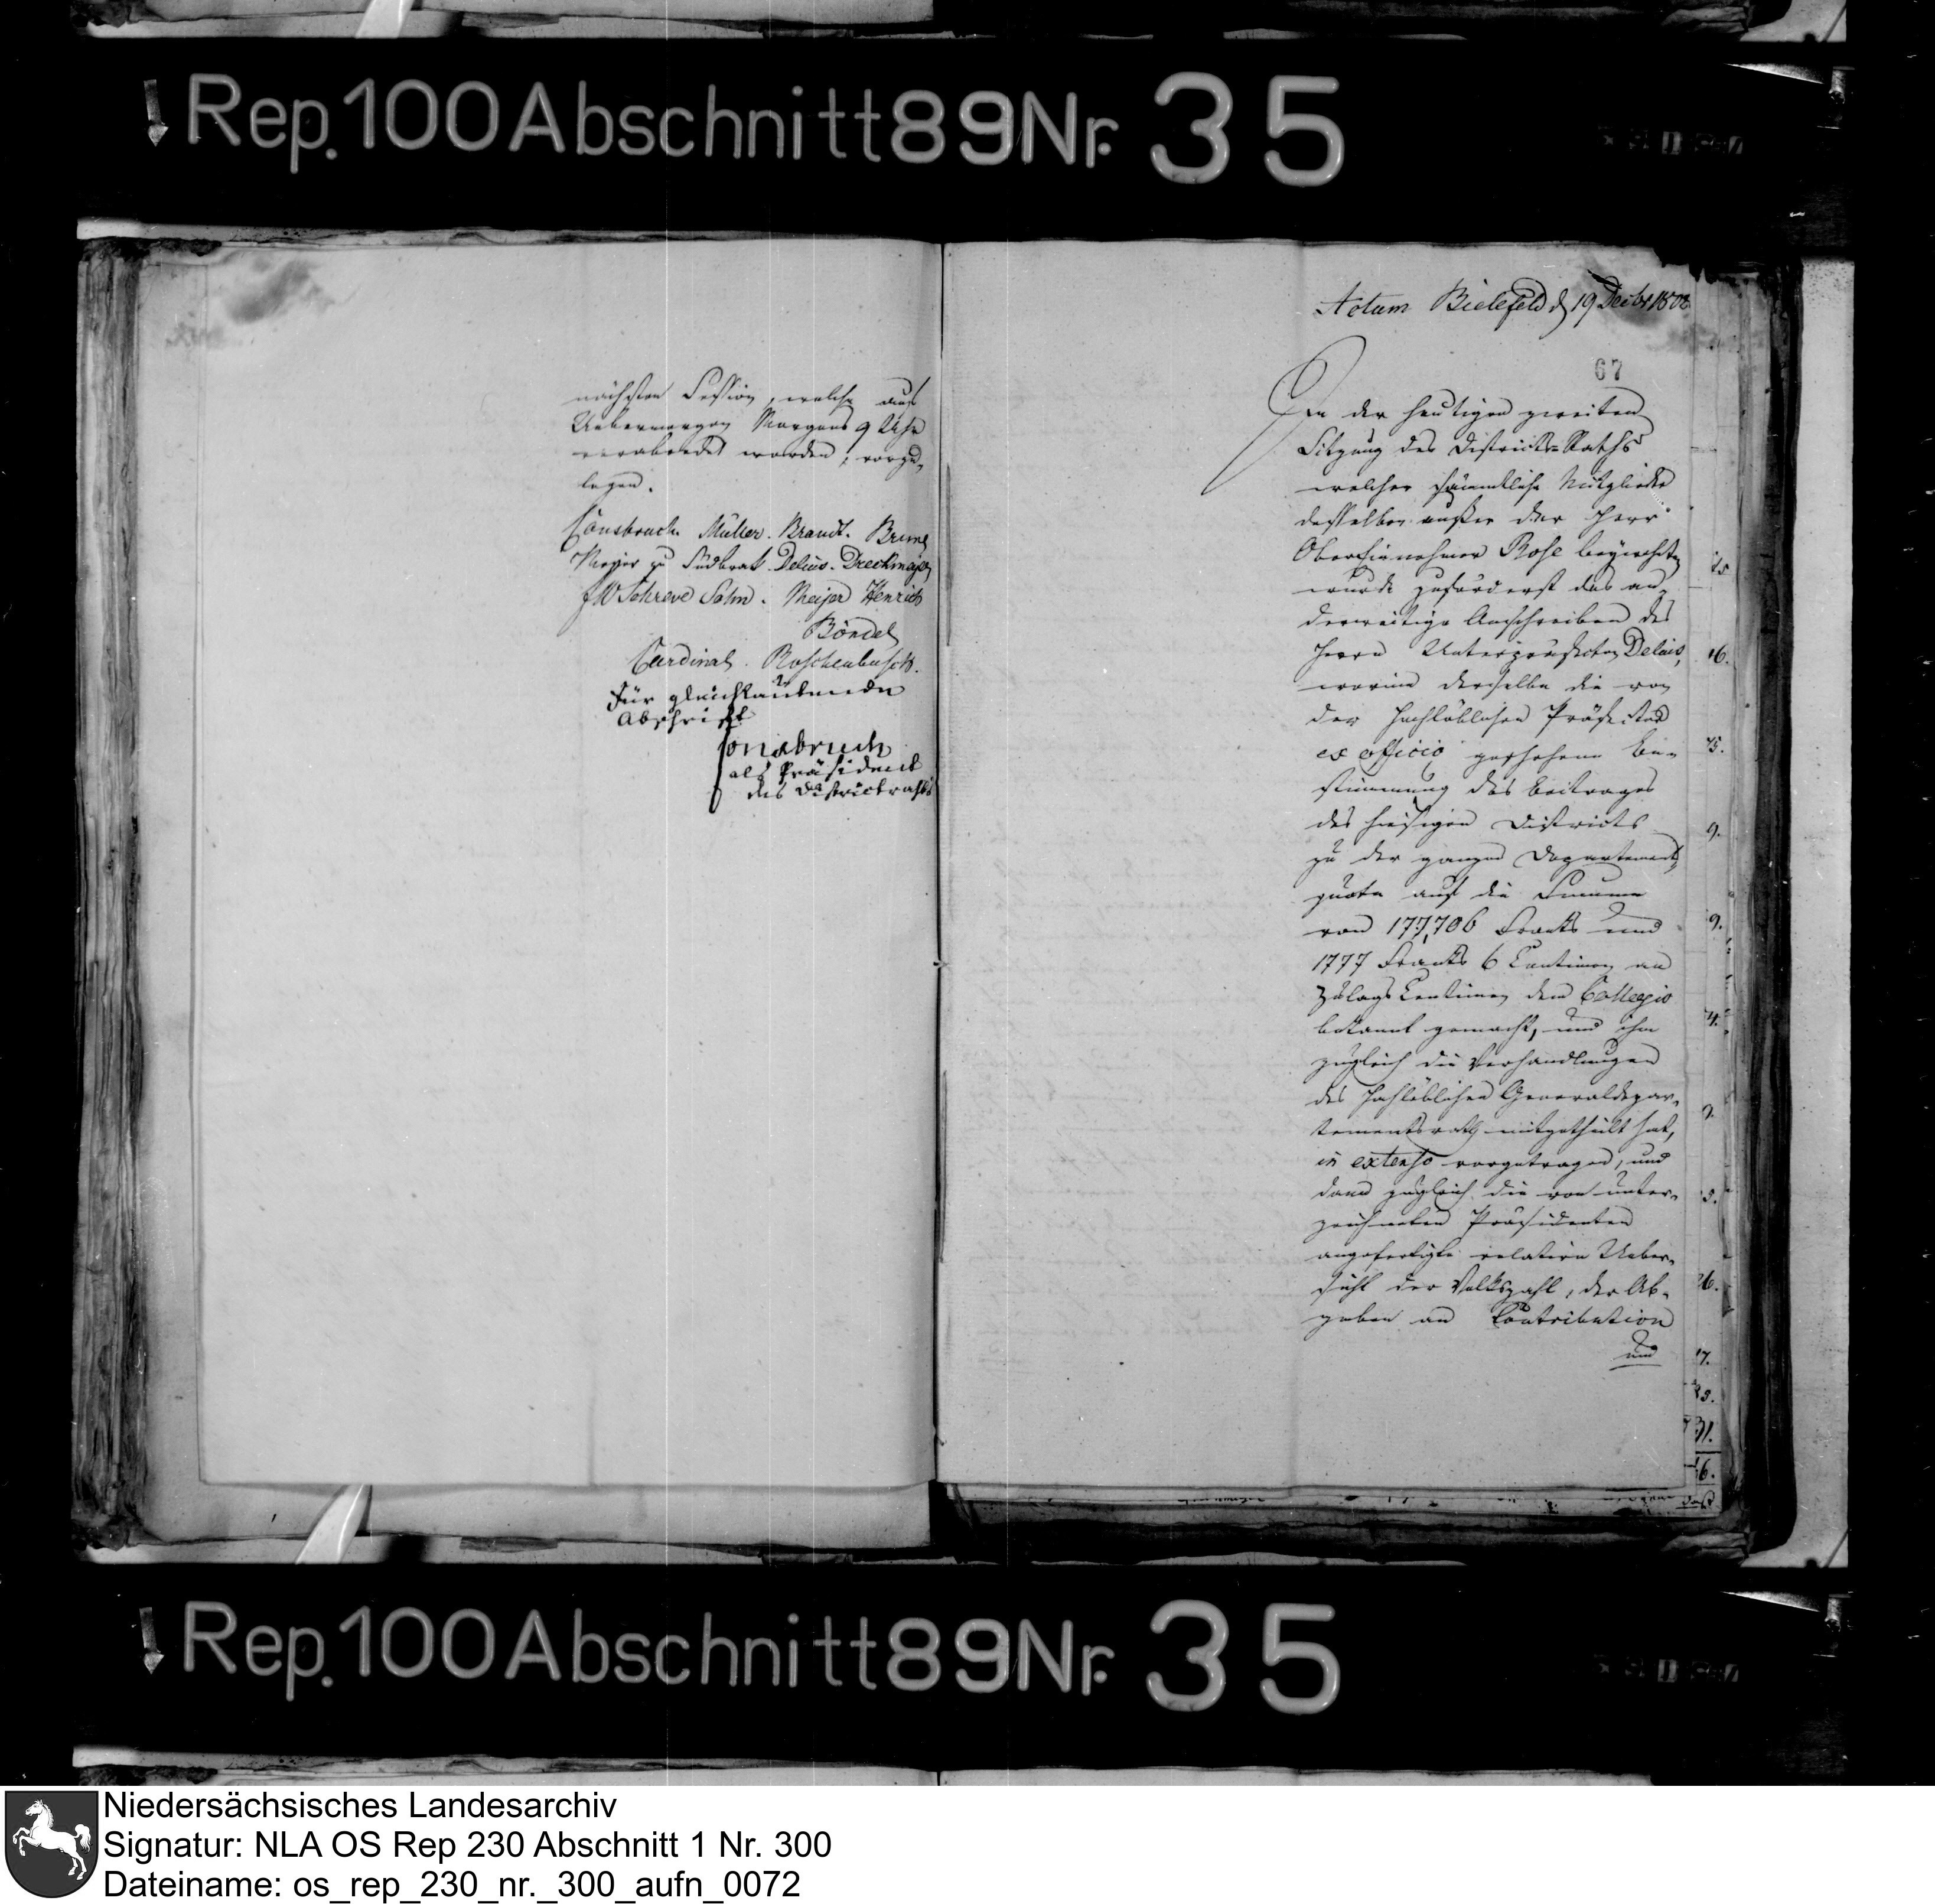 Rep. 100 Abschnitt 89 Nr. 35
nächsten Session, welche auf
Uebermorgen Morgens 9 Uhr
verabredet worden, vorzu-
legen.
Consbruch. Müller. Brandt.
Meyer zu Südbrak Delius. Dreckmeyer
FW Schreve Sohn. Meijer Henrich
Böndel
Cardinal. Roschenbusch.
Für gleichlautende
Abschrift
Consbruch
als Präsident
des Districtraths
Actum Bielefeld d 19 Decbr 1808
67
In der heutigen zweiten
Sitzung des Districts-Raths
welcher sämmtliche Mitglieder
desselben außer der Herr
Obereinnehmer Rose beywohnten
wurde zuförderst das an-
derweitige Anschreiben des
Herrn Unterpräfecten Delius,
worinn derselbe die von
der Hochlöblichen Präfectur
ex officio geschehene Be-
stimmung des Beitrages
des hiesigen Districts
zu der ganzen Departements
quote auf die Summe
von 177,706 Franks und
1777 Franks 6 Centimen an
Zulags Centimen dem Collegio
bekannt gemacht, und ihm
zugleich die Verhandlungen
des Hochlöblichen Generaldepar-
tementsrath mitgetheilt hat,
in extenso vorgetragen, und
dann zugleich die von unter-
zeichneten Präsidenten
angefertigte relative Ueber-
sicht der Volkszahl, der Ab-
gaben an Contribution
und
Rep. 100 Abschnitt 89 Nr. 35
Niedersächsisches Landesarchiv
Signatur: NLA OS Rep 230 Abschnitt 1 Nr. 300
Dateiname: os_rep_230_nr._300_aufn_0072